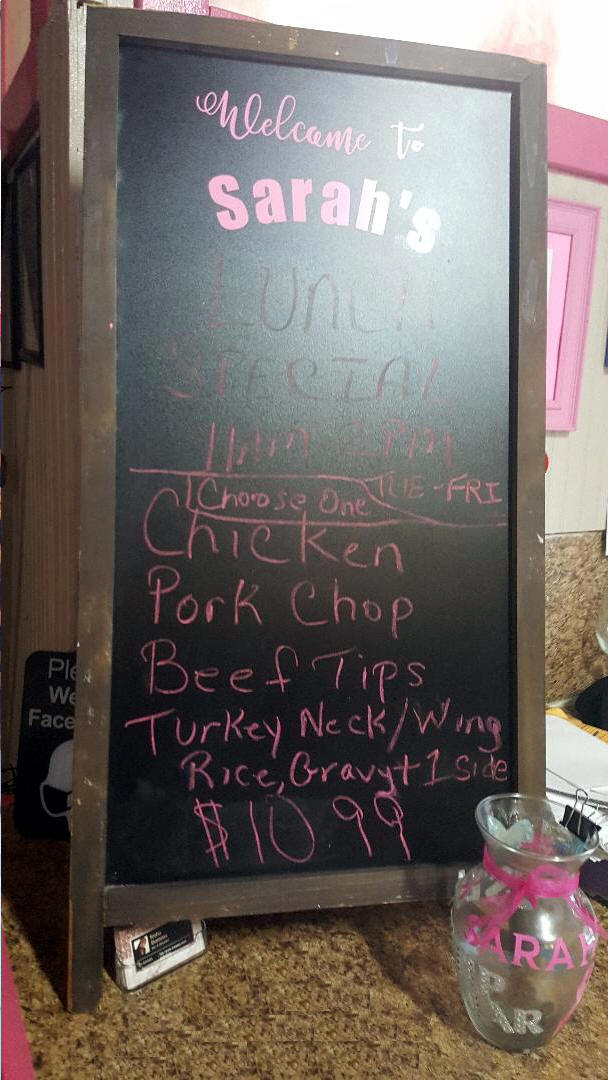 Welcome to
Sarah's
LUNCH
SPECIAL
11AM 2PM
TUE-FRI
Choose One
Chicken
Pork Chop
Beef Tips
Turkey Neck/Wing
Rice, Gravy+1 side
$10 99
Ple
We
Face
SARAH